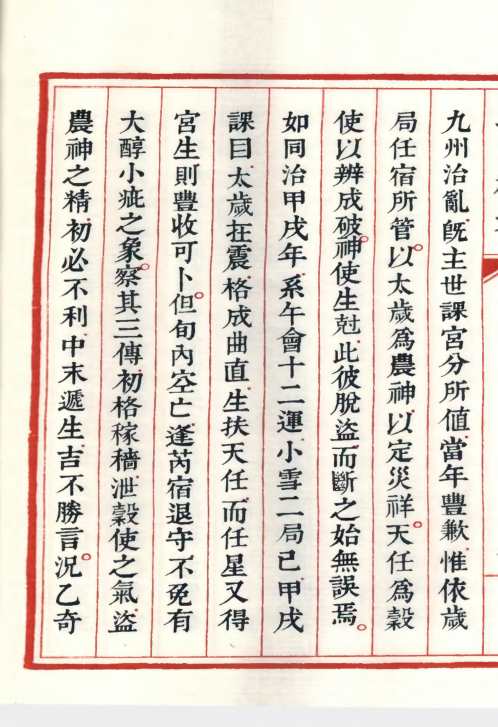 九州治亂旣主世課宮分所値當年豐歉惟依歲
局任宿所管以太歲爲農神以定災祥天任爲穀
使以辨成破神使生尅此彼脫盜而斷之始無誤焉
如同治甲戌年系午會十二運小雪二局己甲戌
課曰太歲在震格成曲直生扶天任而任星又得
宮生則豐收可卜但旬內空亡逢芮宿退守不免有
大醇小疵之象察其三傳初格稼穡泄穀使之氣盜
農神之精初必不利中末遞生吉不勝言況乙奇